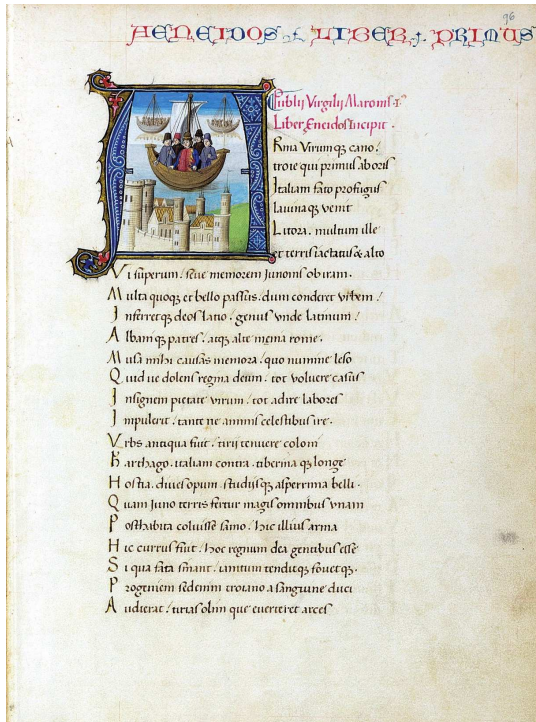 96
AENEIDOS LIBER PRIMUS
Publij Virgilij Maronis
Liber Eneidos Incipit.
Rma Virumq; cano:
troie qui primus ab oris
Italiam fato profugus
lavinaq; venit
Litora. multum ille
et terris iactatus & alto
Vi superum. seve memorem Junonis ob iram.
Multa quoq; et bello passus. dum conderet vrbem:
Inferretq; deos latio. genus vnde latinum:
Albaniq; patres: atq; alte menia rome.
Musa mihi causas memora: quo numine leso
Quid ve dolens regina deum: tot volvere casus
Insignem pietate virum: tot adire labores
Impulerit: tante ne animis celestibus ire.
Vrbs antiqua fuit: tirij tenuere coloni
Karthago. italiam contra. tiberina q; longe
Hostia. dives opum. studijsq; asperrima belli.
Quam Juno terris fertur magis omnibus vnam
Posthabita coluisse samo. hic illius arma
Hic currus fuit: hoc regnum dea gentibus esse
Si qua fata sinant: iamtum tenditq; fovetq;.
Progeniem sed enim troiano a sanguine duci
Audierat: tirias olim que everteret arces